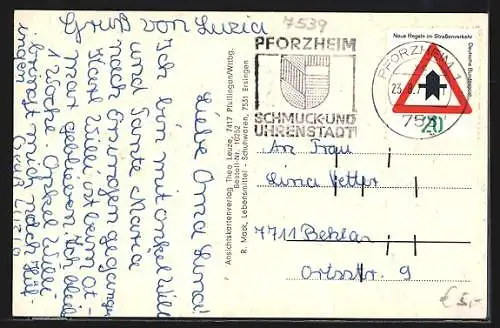 Gruß von Luzia
7539
Liebe Oma Lina!
Ich bin mit Onkel Willi
und Tante Maria
nach Ersingen gegangen
Karl Willi ist beim
man geblieben. Ich bleibe
1 Woche. Onkel Willi
bringt mich nach
ingen
Gruß Luzia
Ansichtskartenverlag Theo Leuze, 7417 Pfullingen/Wttbg.
Bestell-Nr. 10252
R. Maak, Lebensmittel - Schulwaren, 7531 Ersingen
PFORZHEIM
SCHMUCK-UND
UHRENSTADT
Neue Regeln im Straßenverkehr
Deutsche Bundespost
20
PFORZHEIM 1
23.8.7
753
An Frau
Lina Vetter
7711 Behlar
Ortsstr. 9
€ 5,-